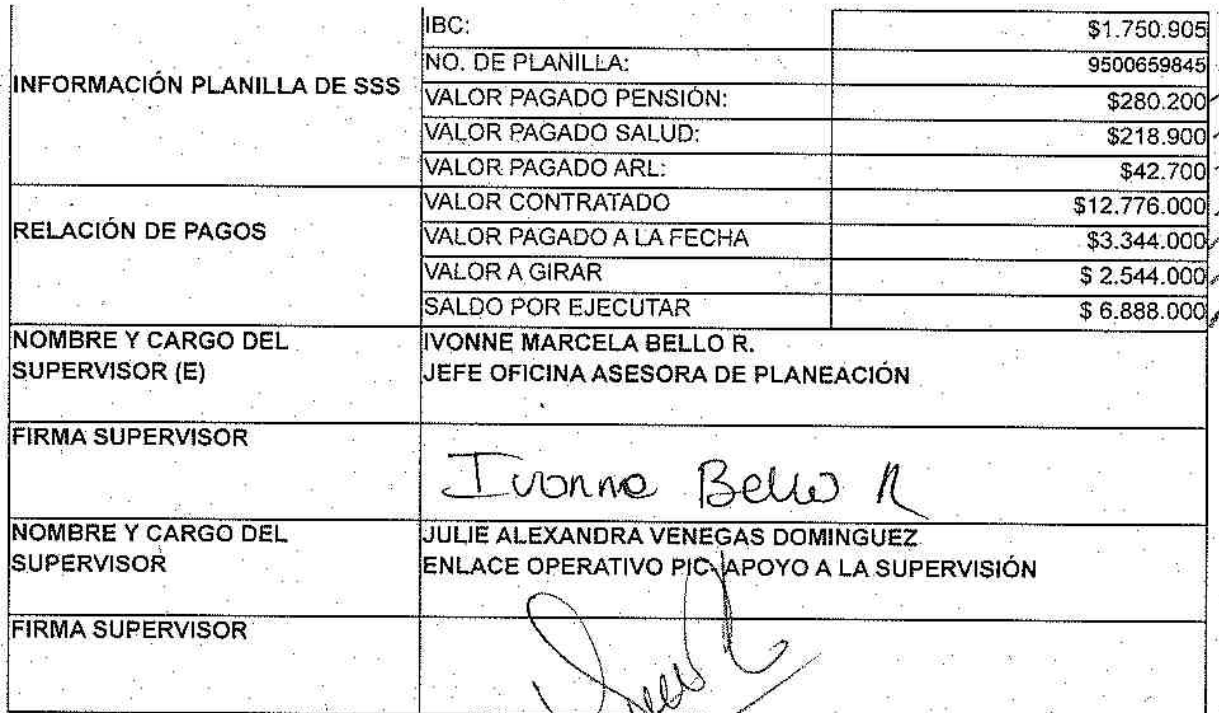 IBC: $1.750.905
INFORMACIÓN PLANILLA DE SSS
NO. DE PLANILLA: 9500659845
VALOR PAGADO PENSIÓN: $280.200
VALOR PAGADO SALUD: $218.900
VALOR PAGADO ARL: $42.700
RELACIÓN DE PAGOS
VALOR CONTRATADO $12.776.000
VALOR PAGADO A LA FECHA $3.344.000
VALOR A GIRAR $ 2.544.000
SALDO POR EJECUTAR $ 6.888.000
NOMBRE Y CARGO DEL
SUPERVISOR (E)
IVONNE MARCELA BELLO R.
JEFE OFICINA ASESORA DE PLANEACIÓN
FIRMA SUPERVISOR
Ivonne Bello R
NOMBRE Y CARGO DEL
SUPERVISOR
JULIE ALEXANDRA VENEGAS DOMINGUEZ
ENLACE OPERATIVO PIC- APOYO A LA SUPERVISIÓN
FIRMA SUPERVISOR